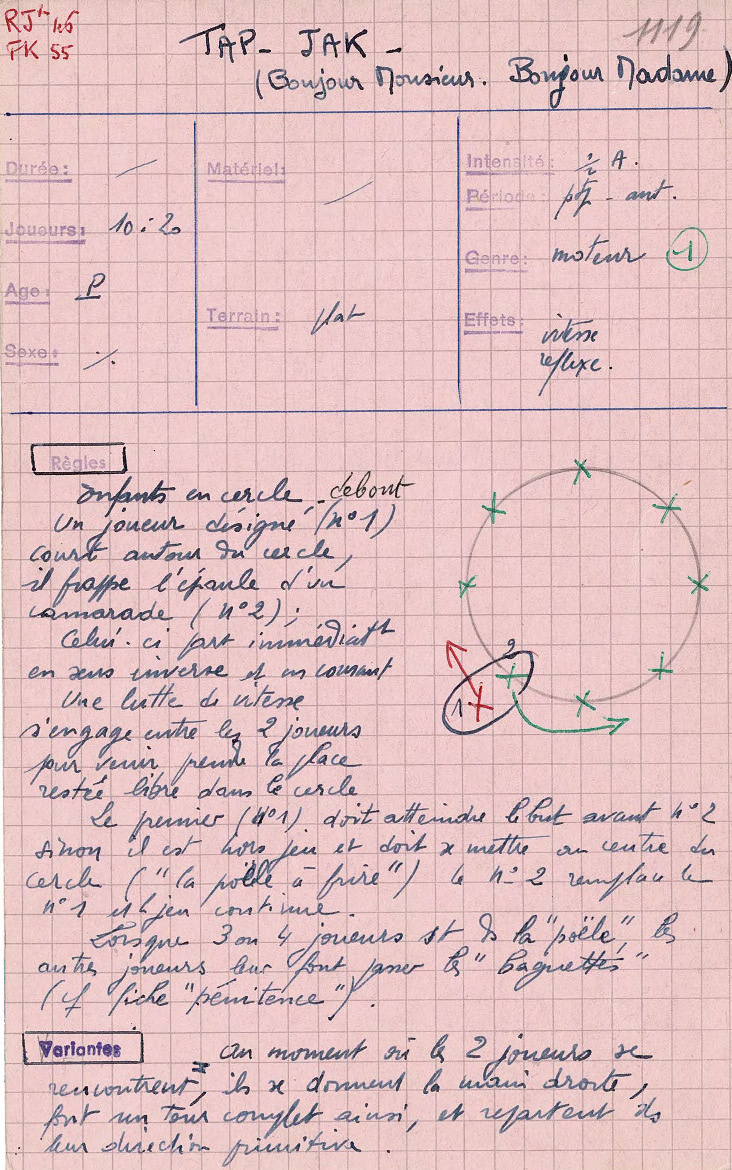 RJt 46
FK 55
1119
TAP - JAK -
(Bonjour Monsieur. Bonjour Madame)
Durée: /
Joueurs: 10 à 20
Age: P
Sexe: /.
Matériel: /
Terrain: plat
Intensité: ½ A.
Période: - ant.
Genre: moteur 1
Effets: vitesse
réflexe.
Règles
Enfants en cercle, debout
Un joueur désigné (n°1)
court autour du cercle,
il frappe l'épaule d'un
camarade (n°2);
Celui-ci part immédiatt
en sens inverse et en courant
Une lutte de vitesse
s'engage entre les 2 joueurs
pour venir prendre la place
restée libre dans le cercle
Le premier (n°1) doit atteindre le but avant n°2
sinon il est hors jeu et doit se mettre au centre du
cercle ("la poële à frire") le n°2 remplace le
n°1 et le jeu continue.
Lorsque 3 ou 4 joueurs st ds la "poële", les
autres joueurs leur font passer les "baguettes"
(cf fiche "pénitence").
2
1
Variantes
au moment où les 2 joueurs se
rencontrent, ils se donnent la main droite,
font un tour complet ainsi, et repartent ds
leur direction primitive.